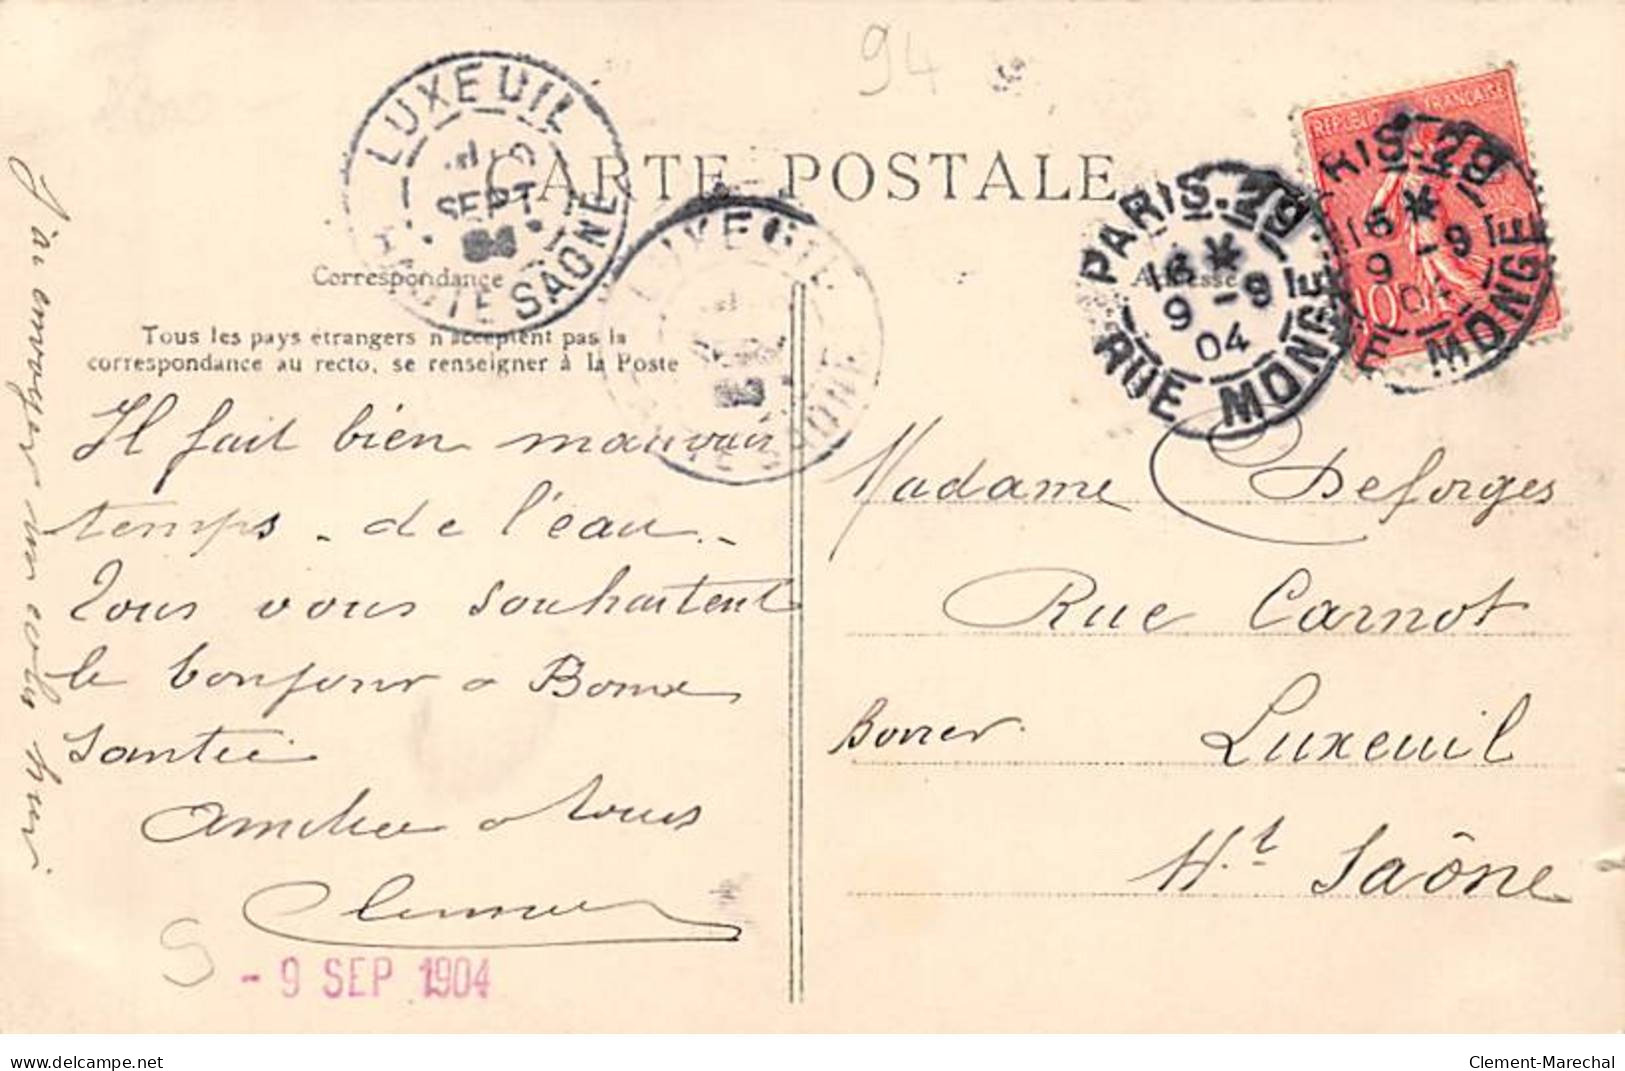 94
CARTE POSTALE
LUXEUIL
SEPT
HAUTE SAONE
LUXEUIL
SAONE
PARIS.29
16 *
9 -9
04
RUE MONGE
PARIS.29
16 *
9 -9
04
RUE MONGE
REPUBLIQUE FRANÇAISE
10
Correspondance
Adresse
Tous les pays étrangers n'acceptent pas la
correspondance au recto, se renseigner à la Poste
Il fait bien mauvais
temps - de l'eau -
Tous vous souhaitent
le bonjour
Santée
tous
J'ai envoyer un colis hier
Madame Deforges
Rue Carnot
Luxeuil
Ht Saône
S
- 9 SEP 1904
delcampe.net
Clement-Marechal